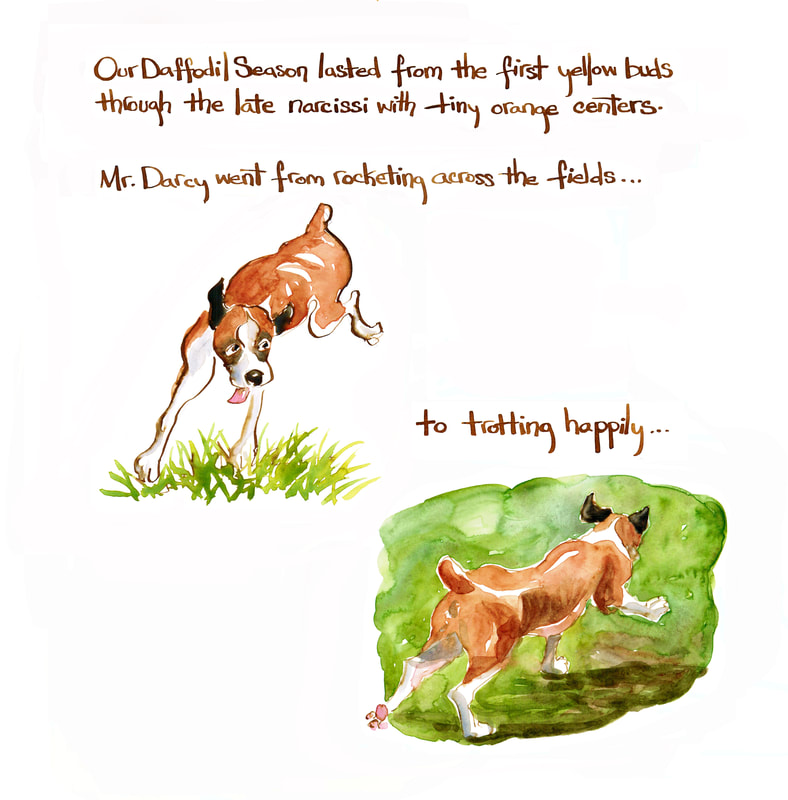 Our Daffodil Season lasted from the first yellow buds
through the late narcissi with tiny orange centers.
Mr. Darcy went from rocketing across the fields...
to trotting happily...